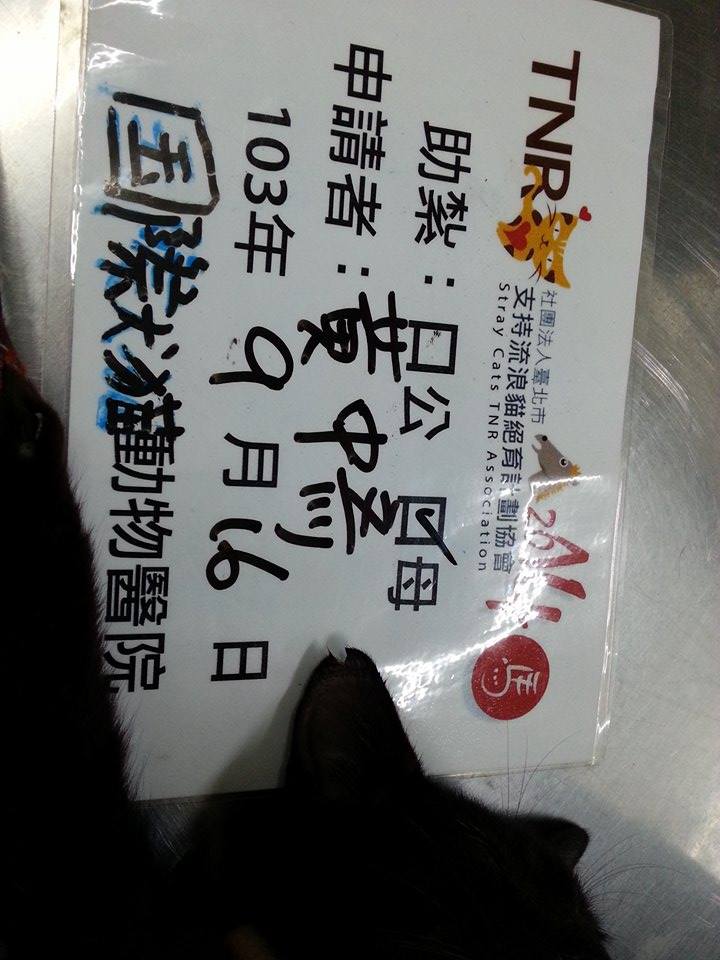 TNR
社團法人臺北市
支持流浪貓絕育計劃協會
Stray Cats TNR Association
馬
助紮：□公 ☑母
申請者：黃中
103年9月16日
国際犬猫動物醫院